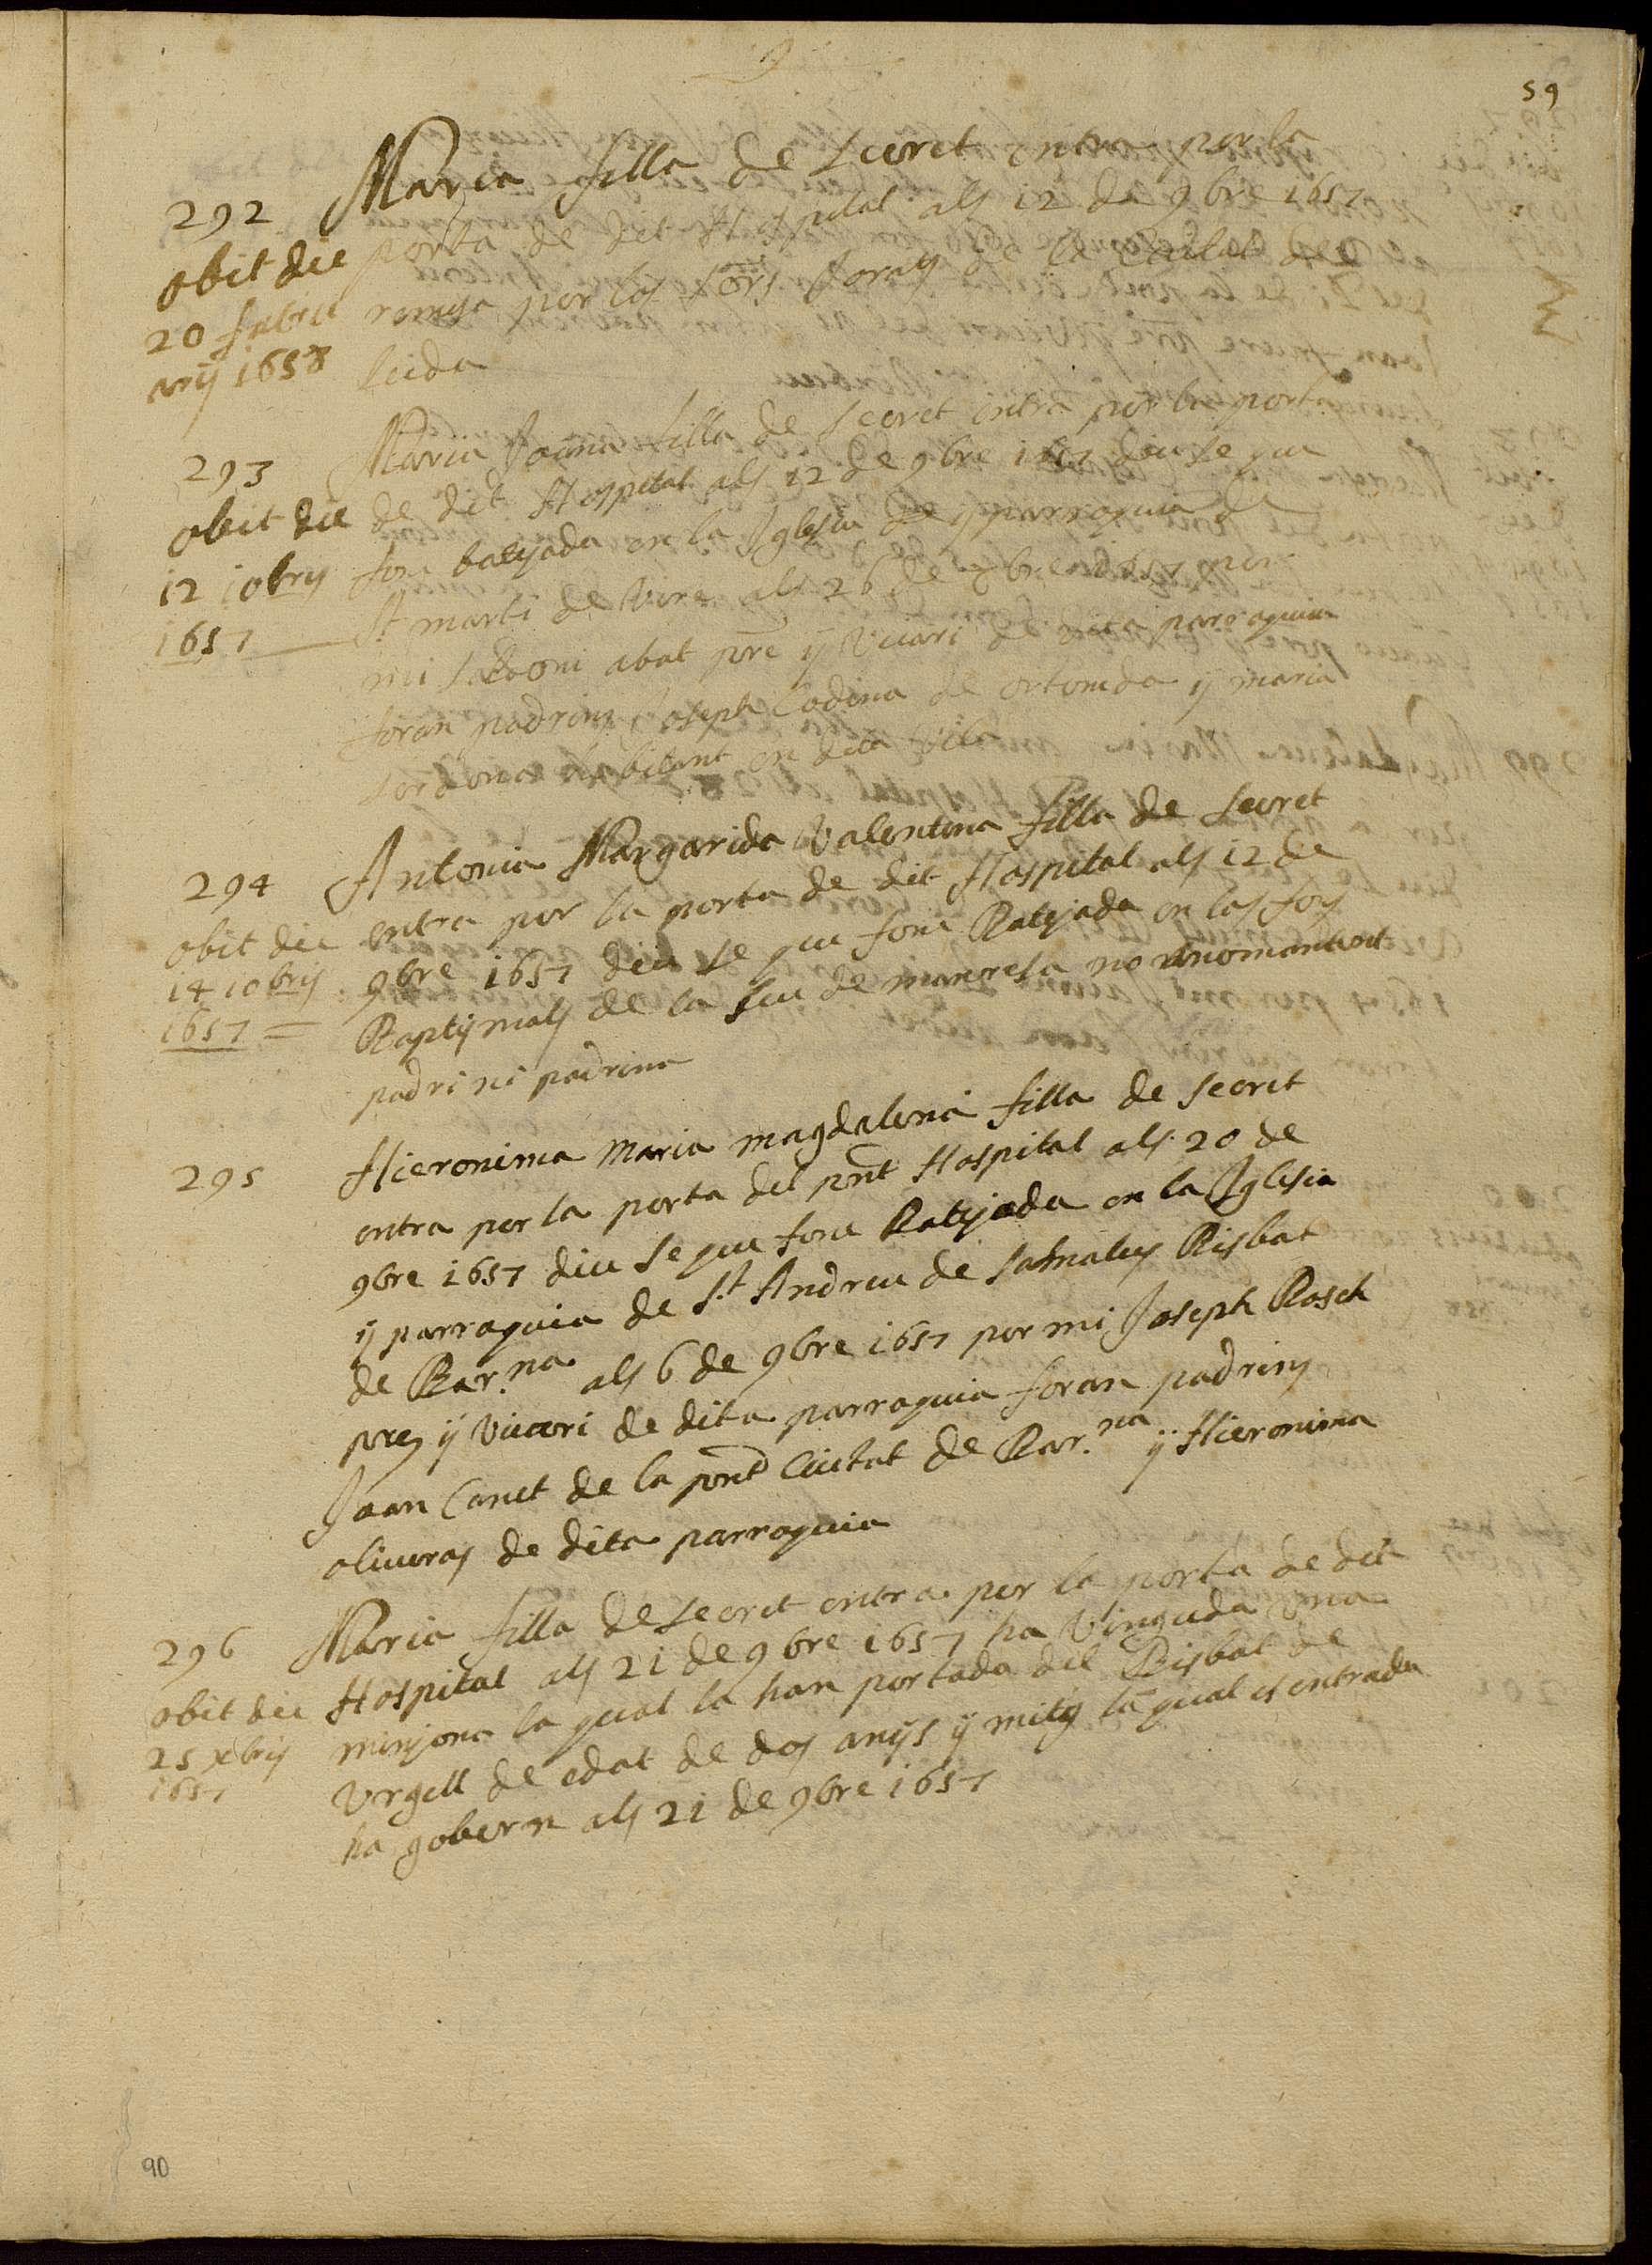 59
292 Maria filla de Secret entra per la
obit die porta de dit Hospital als 12 de 9bre 1657
20 febru remesa per los Sors Jorats de la Ciutat de
arij 1658 leida
293 Maria Joana filla de secret entra per la porta
obit die de dit Hospital als 12 de 9bre 1657 diu se que
12 10bris fou batejada en la Iglesia de y parroquia de
1657 St marti de Vire als 26 de 7bre 1657 per
mi abat pre ÿ Vicari de dita parroquia
foran padrins Joseph Codina de ortoneda ÿ maria
habitant en dita Vila
294 Antonia Margarida Valentina filla de secret
obit die entra per la porta de dit Hospital als 12 de
14 10bris 9bre 1657 diu se que fou Batejada en las fos
1657 = Baptysmals de la seu de manresa no anomanant
padri ni padrina
295 Hieronima Maria magdalena filla de secret
entra per la porta del pnt Hospital als 20 de
9bre 1657 diu se que fou Batejada en la Iglesia
ÿ parroquia de St Andreu de Bisbat
de Bar.na als 6 de 9bre 1657 per mi Joseph Bosch
pre ÿ Vicari de dita parroquia foran padrins
Joan Canet de la pnt Ciutat de Bar.na ÿ Hieronima
oliveras de dita parroquia
296 Maria filla de secret entra per la porta de dit
obit die Hospital als 21 de 9bre 1657 ha Vinguda una
25 xbris minyona la qual la han portada del Bisbat de
1657 Vrgell de edat de dos anÿs ÿ mitg la qual es entrada
ha gobern als 21 de 9bre 1657
90